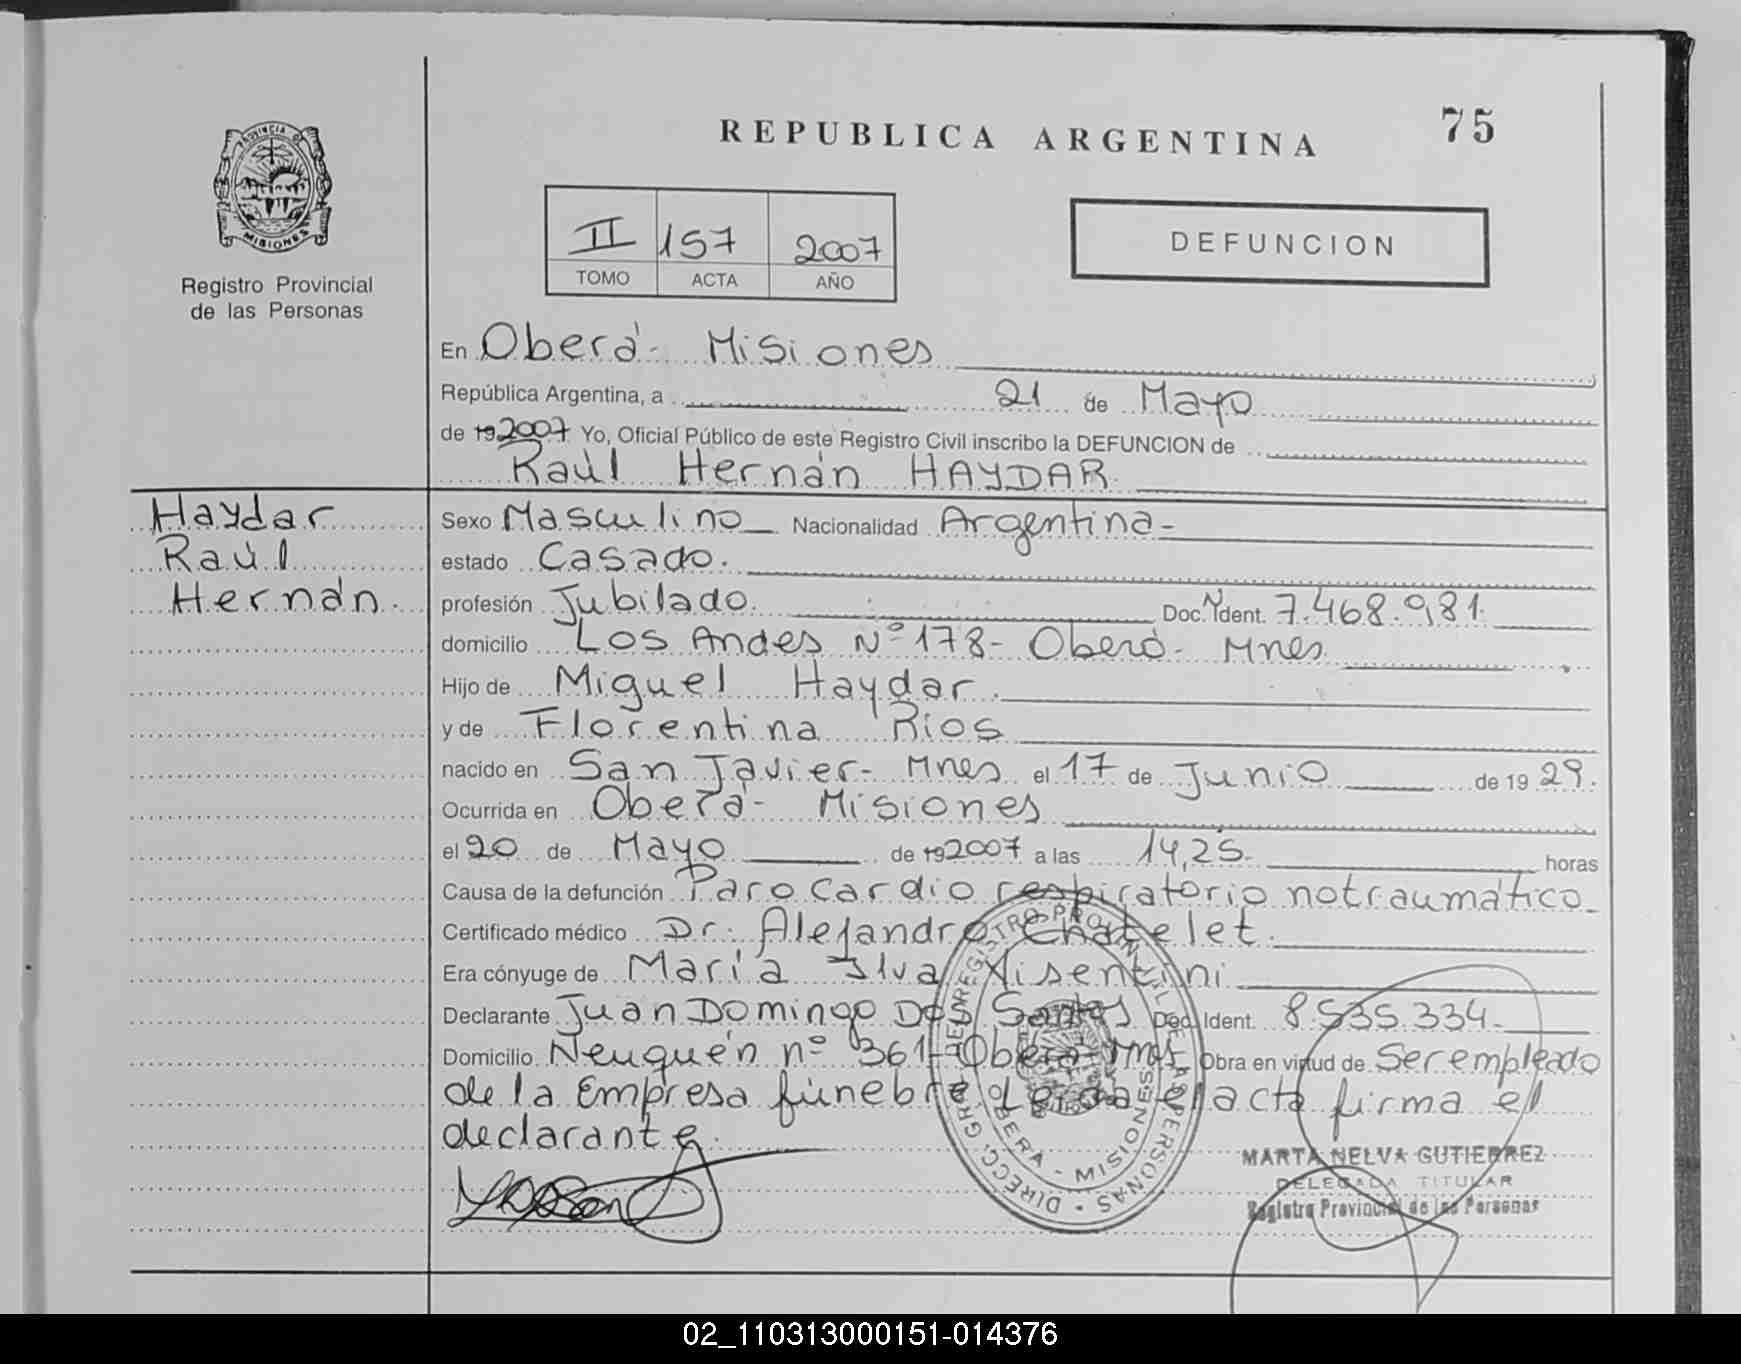 75
REPUBLICA ARGENTINA
PROVINCIA DE
MISIONES
Registro Provincial
de las Personas
II 157 2007
TOMO ACTA AÑO
DEFUNCION
En Oberá- Misiones
República Argentina, a 21 de Mayo
de 19 2007 Yo, Oficial Público de este Registro Civil inscribo la DEFUNCION de
Raúl Hernán HAYDAR
Haydar
Raúl
Hernán
Sexo Masculino Nacionalidad Argentina-
estado Casado.
profesión Jubilado. Doc. Ident. 7.468.981.
domicilio Los Andes Nº 178- Oberá- Mnes
Hijo de Miguel Haydar.
y de Florentina Rios
nacido en San Javier- Mnes el 17 de Junio de 19 29.
Ocurrida en Oberá- Misiones
el 20 de Mayo de 19 2007 a las 14,25. horas
Causa de la defunción Paro cardio respiratorio notraumático
Certificado médico Dr. Alejandro Chatelet.
Era cónyuge de María Ilva Visentini
Declarante Juan Domingo Dos Santos Doc. Ident. 8.535.334-
Domicilio Neuquén nº 361- Oberá- Mnes Obra en virtud de Ser empleado
de la Empresa fúnebre el acta firma el
declarante.
DIRECC. GRAL. DEL REGISTRO PROVINCIAL DE LAS PERSONAS
OBERA - MISIONES
MARTA NELVA GUTIERREZ
DELEGADA TITULAR
Registro Provincial de las Personas
02_110313000151-014376